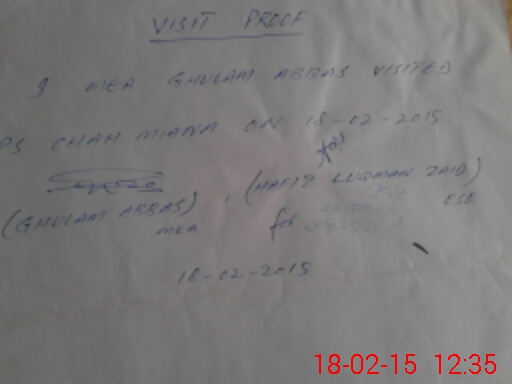 VISIT PROOF
I MEA GHULAM ABBAS VISITED
PS CHAH MIANA ON 18-02-2015
(GHULAM ABBAS), (HAFIZ LUQMAN ZAID)
MEA for ESE
18-02-2015
18-02-15 12:35